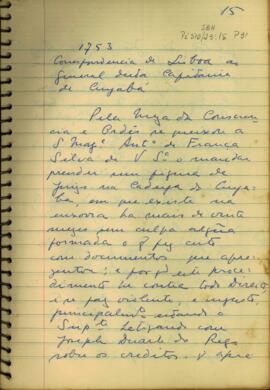 15
1753
Correspondencia de Lisboa ao
General desta Capitania
de Cuyabá
Pela Meza da Conscien
cia e Ordẽs se queixou a
S Magᵉ Antᵒ de França
Silva de V Sᵃ o mandar
prender em figura de
juizo na Cadeya de Cuya
bá, em que existe na
enxovia ha mais de vinte
mezes sem culpa algũa
formada o q̃ fez certo
com documentos que apre
zentou; e porq̃ este proce
dimento he contra todo Direito
e se faz violento, e injusto,
principalmᵗᵉ estando o
Supᵗᵉ Letigando com
Joseph Duarte do Rego
sobre os creditos